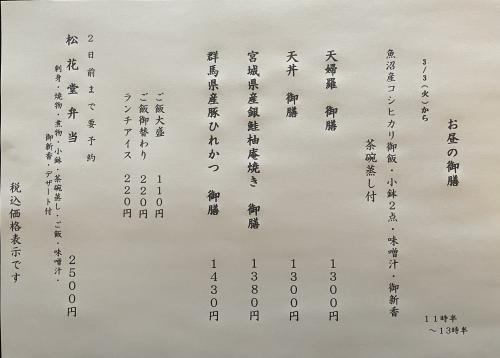 お昼の御膳
11時半
～13時半
3/3(火)から
魚沼産コシヒカリ御飯・小鉢2点・味噌汁・御新香
茶碗蒸し付
天婦羅 御膳 1300円
天丼 御膳 1300円
宮城県産銀鮭柚庵焼き 御膳 1380円
群馬県産豚ひれかつ 御膳 1430円
ご飯大盛 110円
ご飯御替わり 220円
ランチアイス 220円
2日前まで要予約
松花堂弁当 2500円
刺身・焼物・煮物・小鉢・茶碗蒸し・ご飯・味噌汁・
御新香・デザート付
税込価格表示です